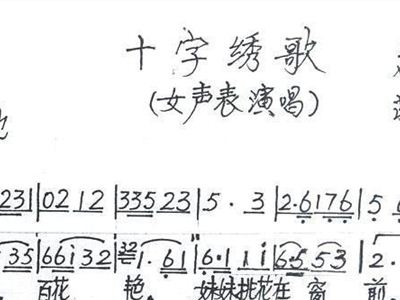 十字绣歌
(女声表演唱)
23|0212|33523|5·3|2·6176|5 6
35|66i32|32 1·61|6·11i|6·553|2·
百花 艳, 妹妹挑花在窗前